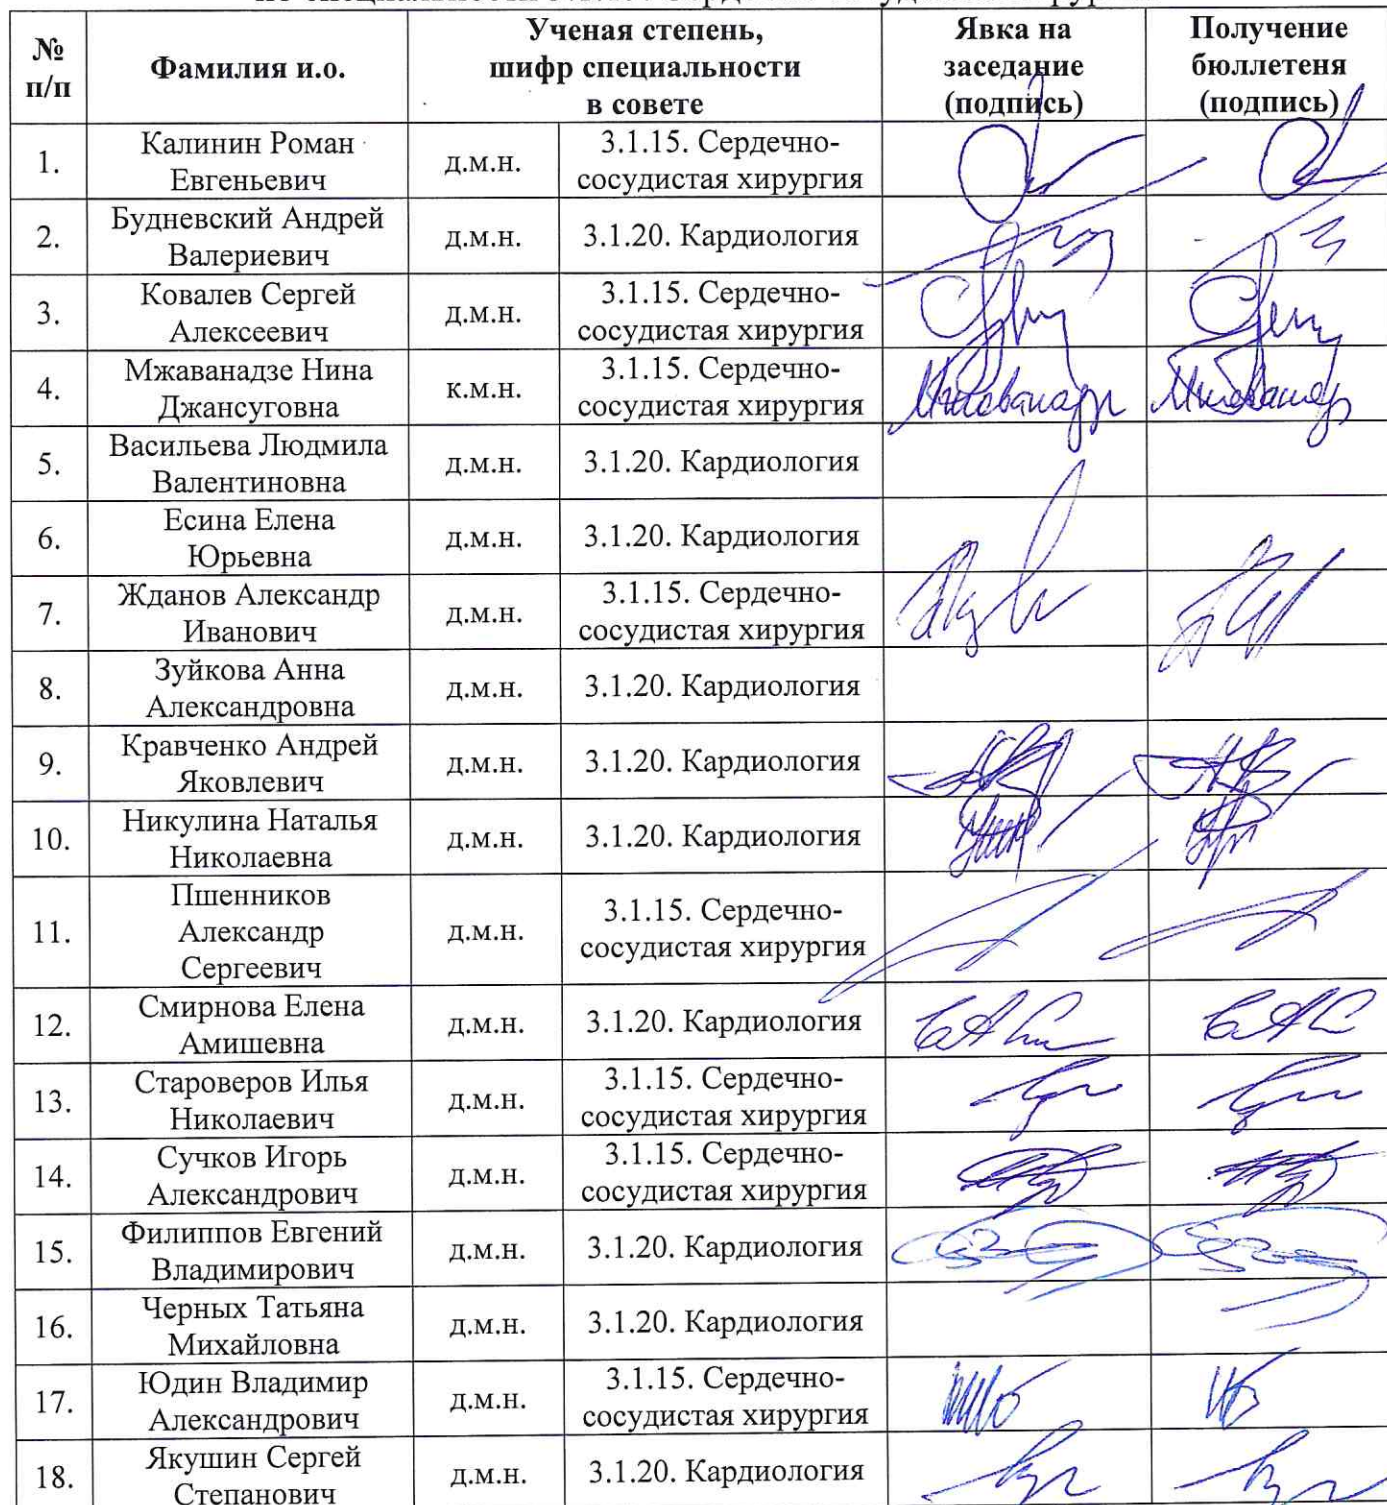 №
п/п
Фамилия и.о.
Ученая степень,
шифр специальности
в совете
Явка на
заседание
(подпись)
Получение
бюллетеня
(подпись)
1.
Калинин Роман
Евгеньевич
д.м.н.
3.1.15. Сердечно-
сосудистая хирургия
2.
Будневский Андрей
Валериевич
д.м.н.
3.1.20. Кардиология
3.
Ковалев Сергей
Алексеевич
д.м.н.
3.1.15. Сердечно-
сосудистая хирургия
4.
Мжаванадзе Нина
Джансуговна
к.м.н.
3.1.15. Сердечно-
сосудистая хирургия
5.
Васильева Людмила
Валентиновна
д.м.н.
3.1.20. Кардиология
6.
Есина Елена
Юрьевна
д.м.н.
3.1.20. Кардиология
7.
Жданов Александр
Иванович
д.м.н.
3.1.15. Сердечно-
сосудистая хирургия
8.
Зуйкова Анна
Александровна
д.м.н.
3.1.20. Кардиология
9.
Кравченко Андрей
Яковлевич
д.м.н.
3.1.20. Кардиология
10.
Никулина Наталья
Николаевна
д.м.н.
3.1.20. Кардиология
11.
Пшенников
Александр
Сергеевич
д.м.н.
3.1.15. Сердечно-
сосудистая хирургия
12.
Смирнова Елена
Амишевна
д.м.н.
3.1.20. Кардиология
13.
Староверов Илья
Николаевич
д.м.н.
3.1.15. Сердечно-
сосудистая хирургия
14.
Сучков Игорь
Александрович
д.м.н.
3.1.15. Сердечно-
сосудистая хирургия
15.
Филиппов Евгений
Владимирович
д.м.н.
3.1.20. Кардиология
16.
Черных Татьяна
Михайловна
д.м.н.
3.1.20. Кардиология
17.
Юдин Владимир
Александрович
д.м.н.
3.1.15. Сердечно-
сосудистая хирургия
18.
Якушин Сергей
Степанович
д.м.н.
3.1.20. Кардиология